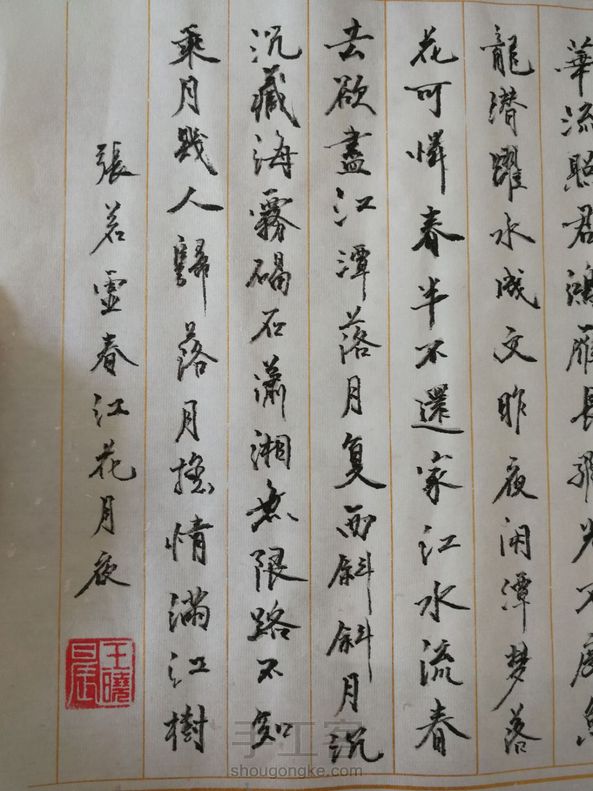 華流照君鴻雁長飛光不度魚
龍潜躍水成文昨夜闲潭梦落
花可憐春半不還家江水流春
去欲盡江潭落月复西斜斜月沉
沉藏海霧碣石瀟湘無限路不知
乘月幾人歸落月摇情滿江樹
張若虚春江花月夜
王曉晨
手工客
shougongke.com